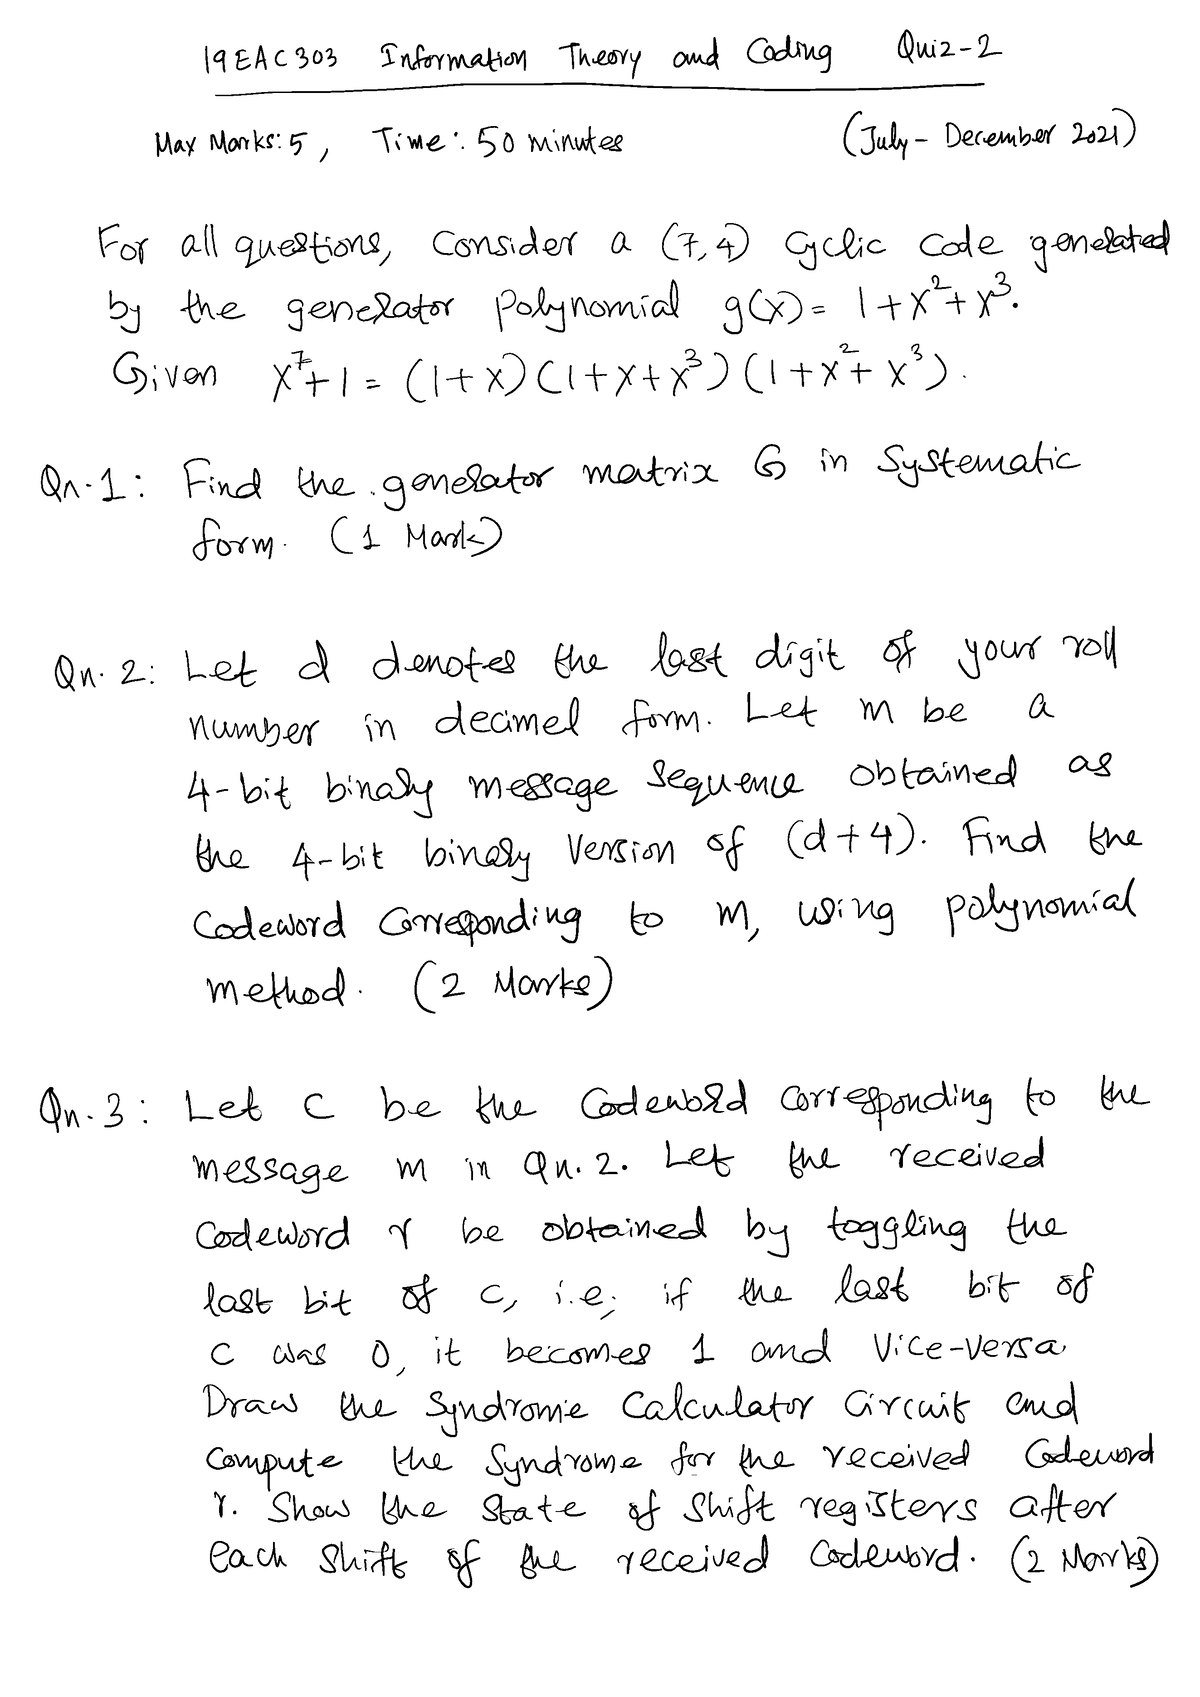 19EAC303 Information Theory and Coding Quiz-2
Max Marks: 5, Time: 50 minutes (July - December 2021)
For all questions, Consider a (7,4) Cyclic Code generated
by the generator polynomial g(x) = 1+x²+x³.
Given x⁷+1 = (1+x)(1+x+x³)(1+x²+x³).
Qn.1: Find the generator matrix G in Systematic
form. (1 Mark)
Qn.2: Let d denotes the last digit of your roll
number in decimel form. Let m be a
4-bit binary message sequence obtained as
the 4-bit binary version of (d+4). Find the
Codeword Corresponding to m, using polynomial
method. (2 Marks)
Qn.3: Let C be the Codeword corresponding to the
message m in Qn.2. Let the received
Codeword r be obtained by toggling the
last bit of c, i.e; if the last bit of
C was 0, it becomes 1 and Vice-versa.
Draw the Syndrome Calculator Circuit and
Compute the Syndrome for the received Codeword
r. Show the State of Shift registers after
each Shift of the received Codeword. (2 Marks)